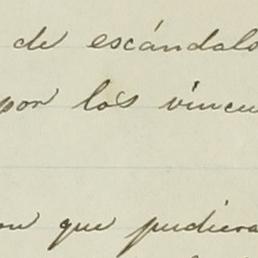 de escándalo
por los vincu
que pudiera